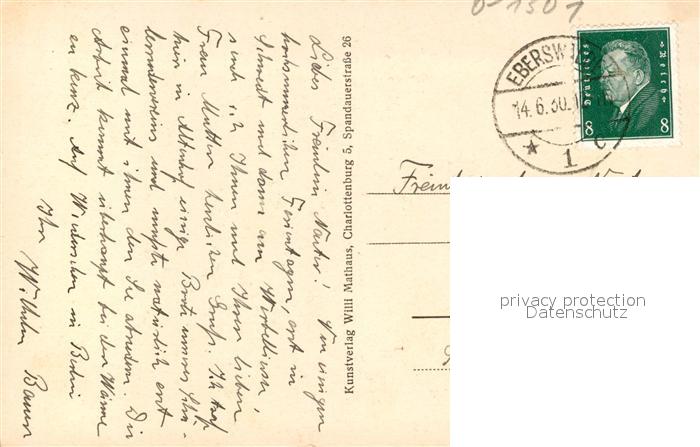 Liebes Fräulein Marter! Von einigen
hochsommerlichen Ferientagen, erst in
Schwedt und dann am Werbellinsee,
sende ich Ihnen und Ihrer lieben
Frau Mutter herzlichen Gruß. Ich traf
hier in Altenhof einige Boote unseres
und mußte natürlich erst
einmal mit ihnen den See abrudern. Die
Arbeit kommt überhaupt bei der Wärme
zu kurz. Auf Wiedersehen in Berlin
Ihr
Wilhelm Bauer
Kunstverlag Willi Mathaus, Charlottenburg 5, Spandauerstraße 26
EBERSW
14.6.30.
* 1 c
Deutsches Reich
8 8
Fräulein
privacy protection
Datenschutz